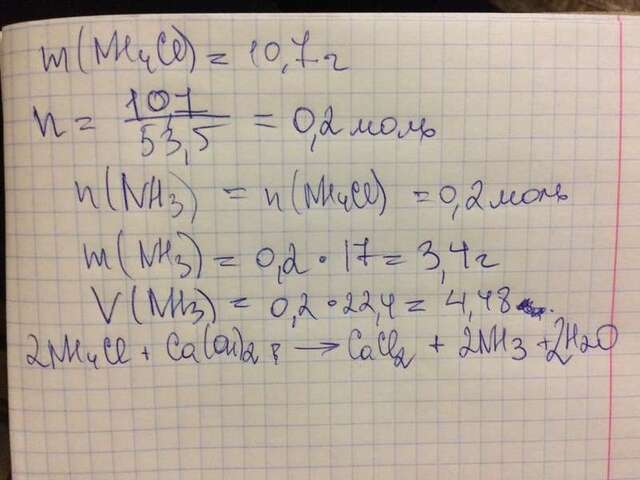 m(NH₄Cl) = 10,7 г
n = 10,7 / 53,5 = 0,2 моль
n(NH₃) = n(NH₄Cl) = 0,2 моль
m(NH₃) = 0,2 · 17 = 3,4 г
V(NH₃) = 0,2 · 22,4 = 4,48
2NH₄Cl + Ca(OH)₂ → CaCl₂ + 2NH₃ + 2H₂O